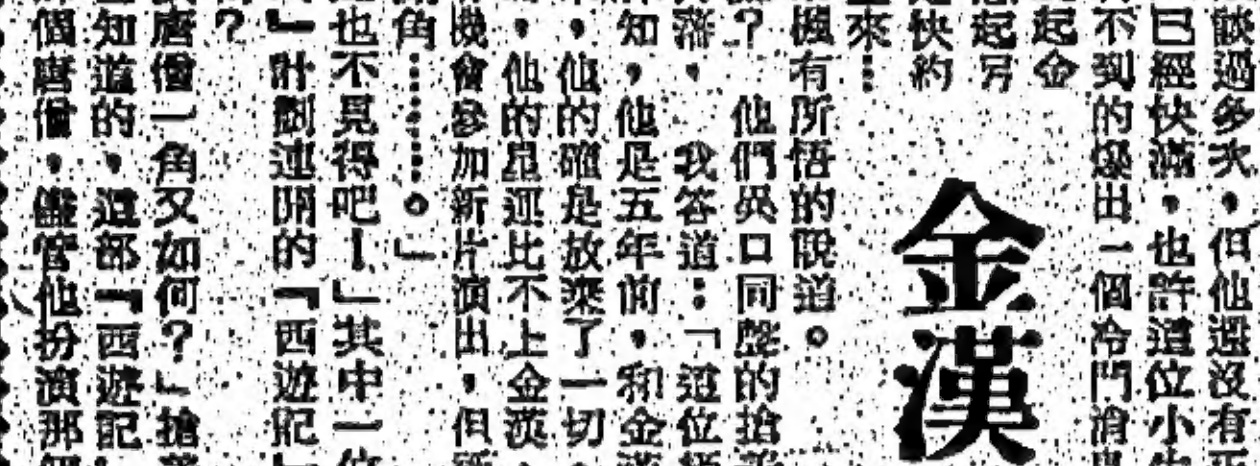 談過多次，但他還沒有正
已經快滿，也許這位小生
不到的爆出一個冷門消息
起金
起另
快約
來⋮
金漢
楓有所悟的說道。
？　他們異口同聲的搶着
落，我答道：「這位
知，他是五年前，和金漢
，他的確是放棄了一切
，他的星運比不上金漢，
機會參加新片演出，但
角⋯⋯⋯。」
也不見得吧！」其中一位
』計劃連開的『西遊記』
？
唐僧一角又如何？」搶着
知道的，這部『西遊記』
個唐僧，儘管他扮演那個